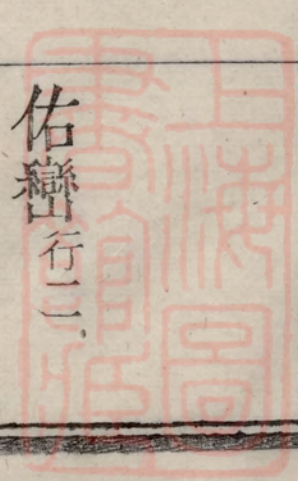 佑巒行二
上海圖
書館藏